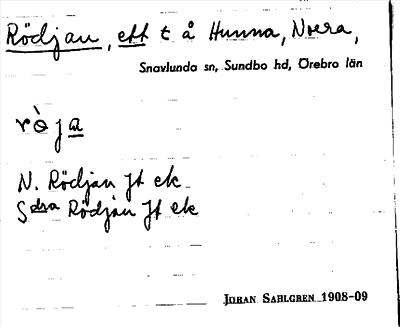 Rödjan, ett t å Hunna, Noera,
Snavlunda sn, Sundbo hd, Örebro län
rò̵ja
N. Rödjan Jt ek
Sdra Rödjan Jt ek
JÖRAN SAHLGREN 1908-09